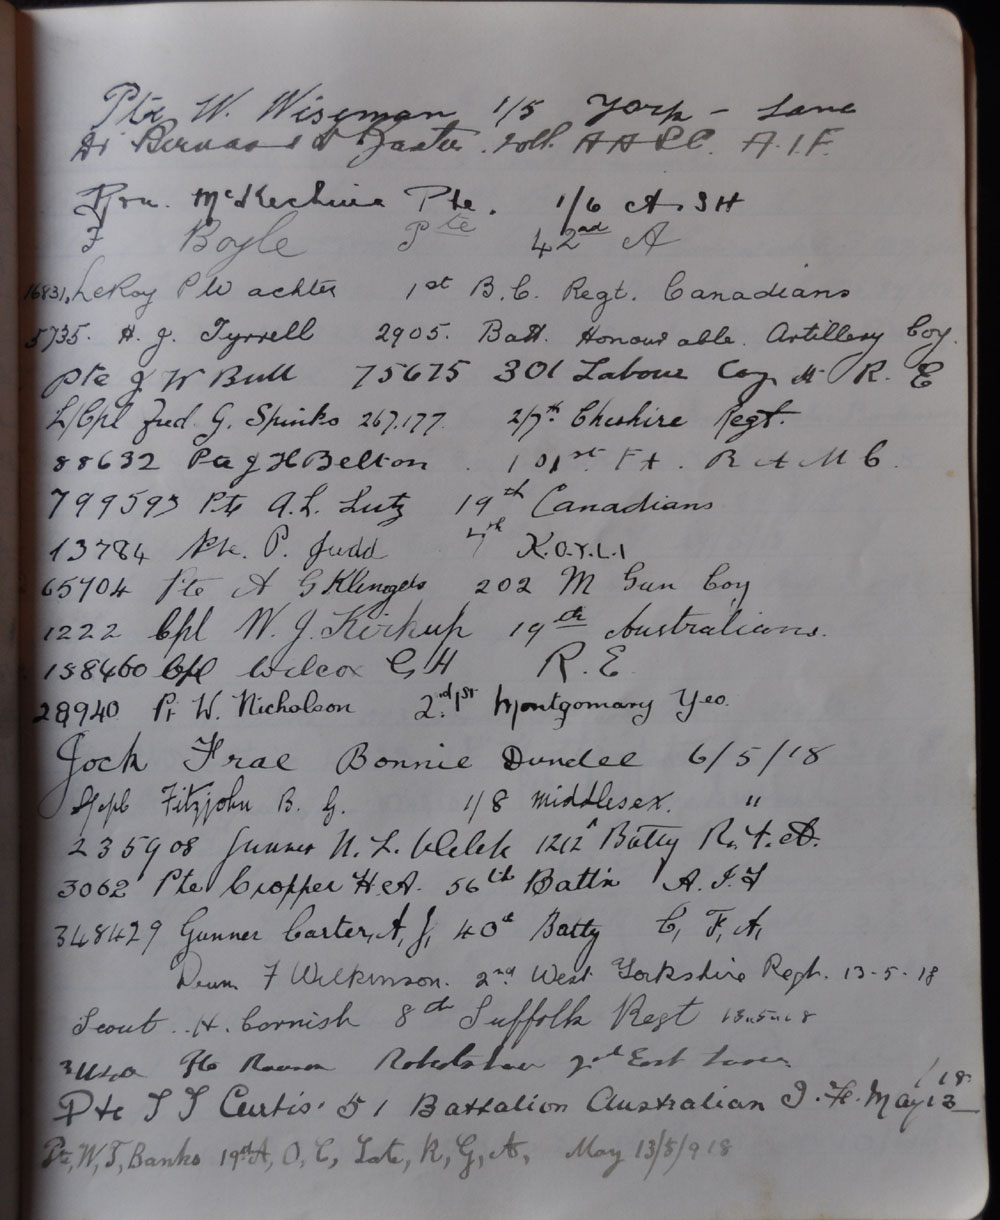 Pte W. Wiseman 1/5 York - Lanc
A.A.S.C. A.I.F.
McKechnie Pte. 1/6 A. S H
F Boyle Pte 42nd A
16831, LeRoy P W achter 1st B.C. Regt. Canadians
5735. H. J. Tyrrell 2905. Batt. Honourable. Artillery Coy.
Pte J W Bull 75675 301 Labour Coy R. E
L/Cpl Fred. G. Spinks 267.177 2/7th Cheshire Regt.
88632 Pte J H Belton. 101st F A. R A M C.
799593 Pte A. L. Lutz 19th Canadians
13784 Pte. P. Judd 7th K.O.Y.L.I
65704 Pte A G 202 M Gun Coy
1222 Cpl W. J. Kirkup 19th Australians.
188460 Cpl Wilcox G H R. E.
28940 Pt W. Nicholson 2nd 1st Montgomary Yeo.
Jock Frae Bonnie Dundee 6/5/18
L/cpl Fitzjohn B. G. 1/8 Middlesex. "
235908 Gunner N. L. Welch 1212 Batty R. F. A.
3062 Pte Cropper H.A. 56th Batt'n A. I. F
348429 Gunner Carter, A, J, 40th Batty C, F, A,
Drum F Wilkinson. 2nd West Yorkshire Regt. 13-5-18
Scout. H. Cornish 8th Suffolk Regt 13-5-18
2nd East
Pte T T Curtis. 51 Battalion Australian I. F. May 13/18
Pte, W, T, Banks 19th A, O, C, Late, R, G, A, May 13/5/918